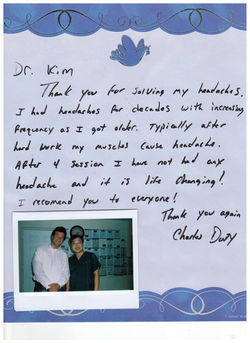 Dr. Kim
Thank you for solving my headaches.
I had headaches for decades with increasing
frequency as I got older. Typically after
hard work my muscles cause headache.
After 4 session I have not had any
headache and it is life changing!
I recomend you to everyone!
Thank you again
Charles